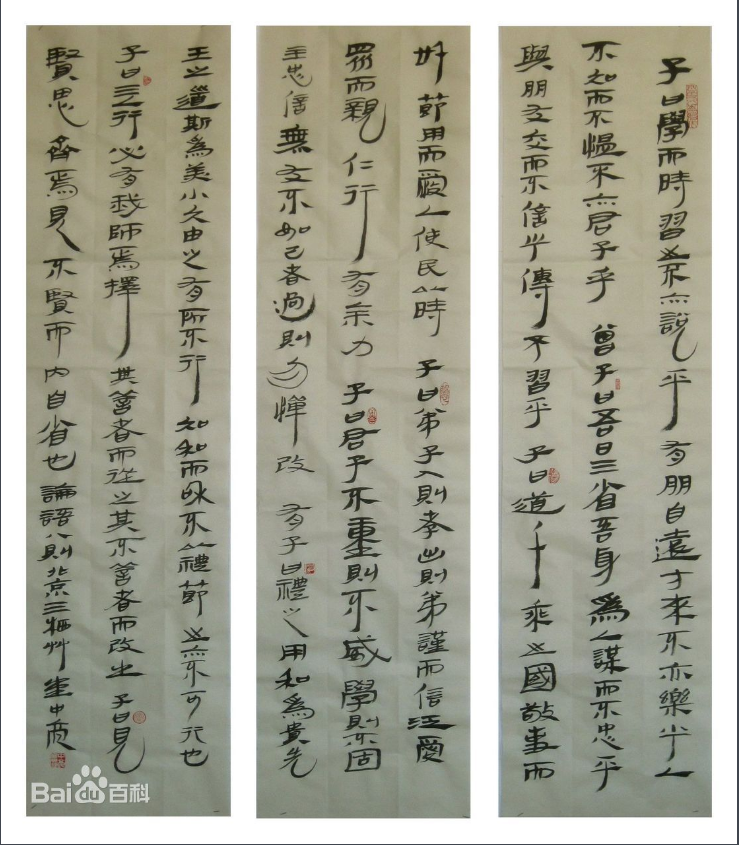 子曰學而時習之不亦說乎有朋自遠方來不亦樂乎人
不知而不慍不亦君子乎曾子曰吾日三省吾身為人謀而不忠乎
與朋友交而不信乎傳不習乎子曰道千乘之國敬事而
節用而愛人使民以時子曰弟子入則孝出則弟謹而信汎愛
眾而親仁行有余力子曰君子不重則不威學則不固
主忠信無友不如己者過則勿憚改有子曰禮之用和為貴先
王之道斯為美小大由之有所不行知和而和不以禮節之亦不可行也
子曰三人行必有我師焉擇其善者而從之其不善者而改之子曰見
賢思齊焉見不賢而內自省也論語八則北京三牺艸堂中商
Baidu百科